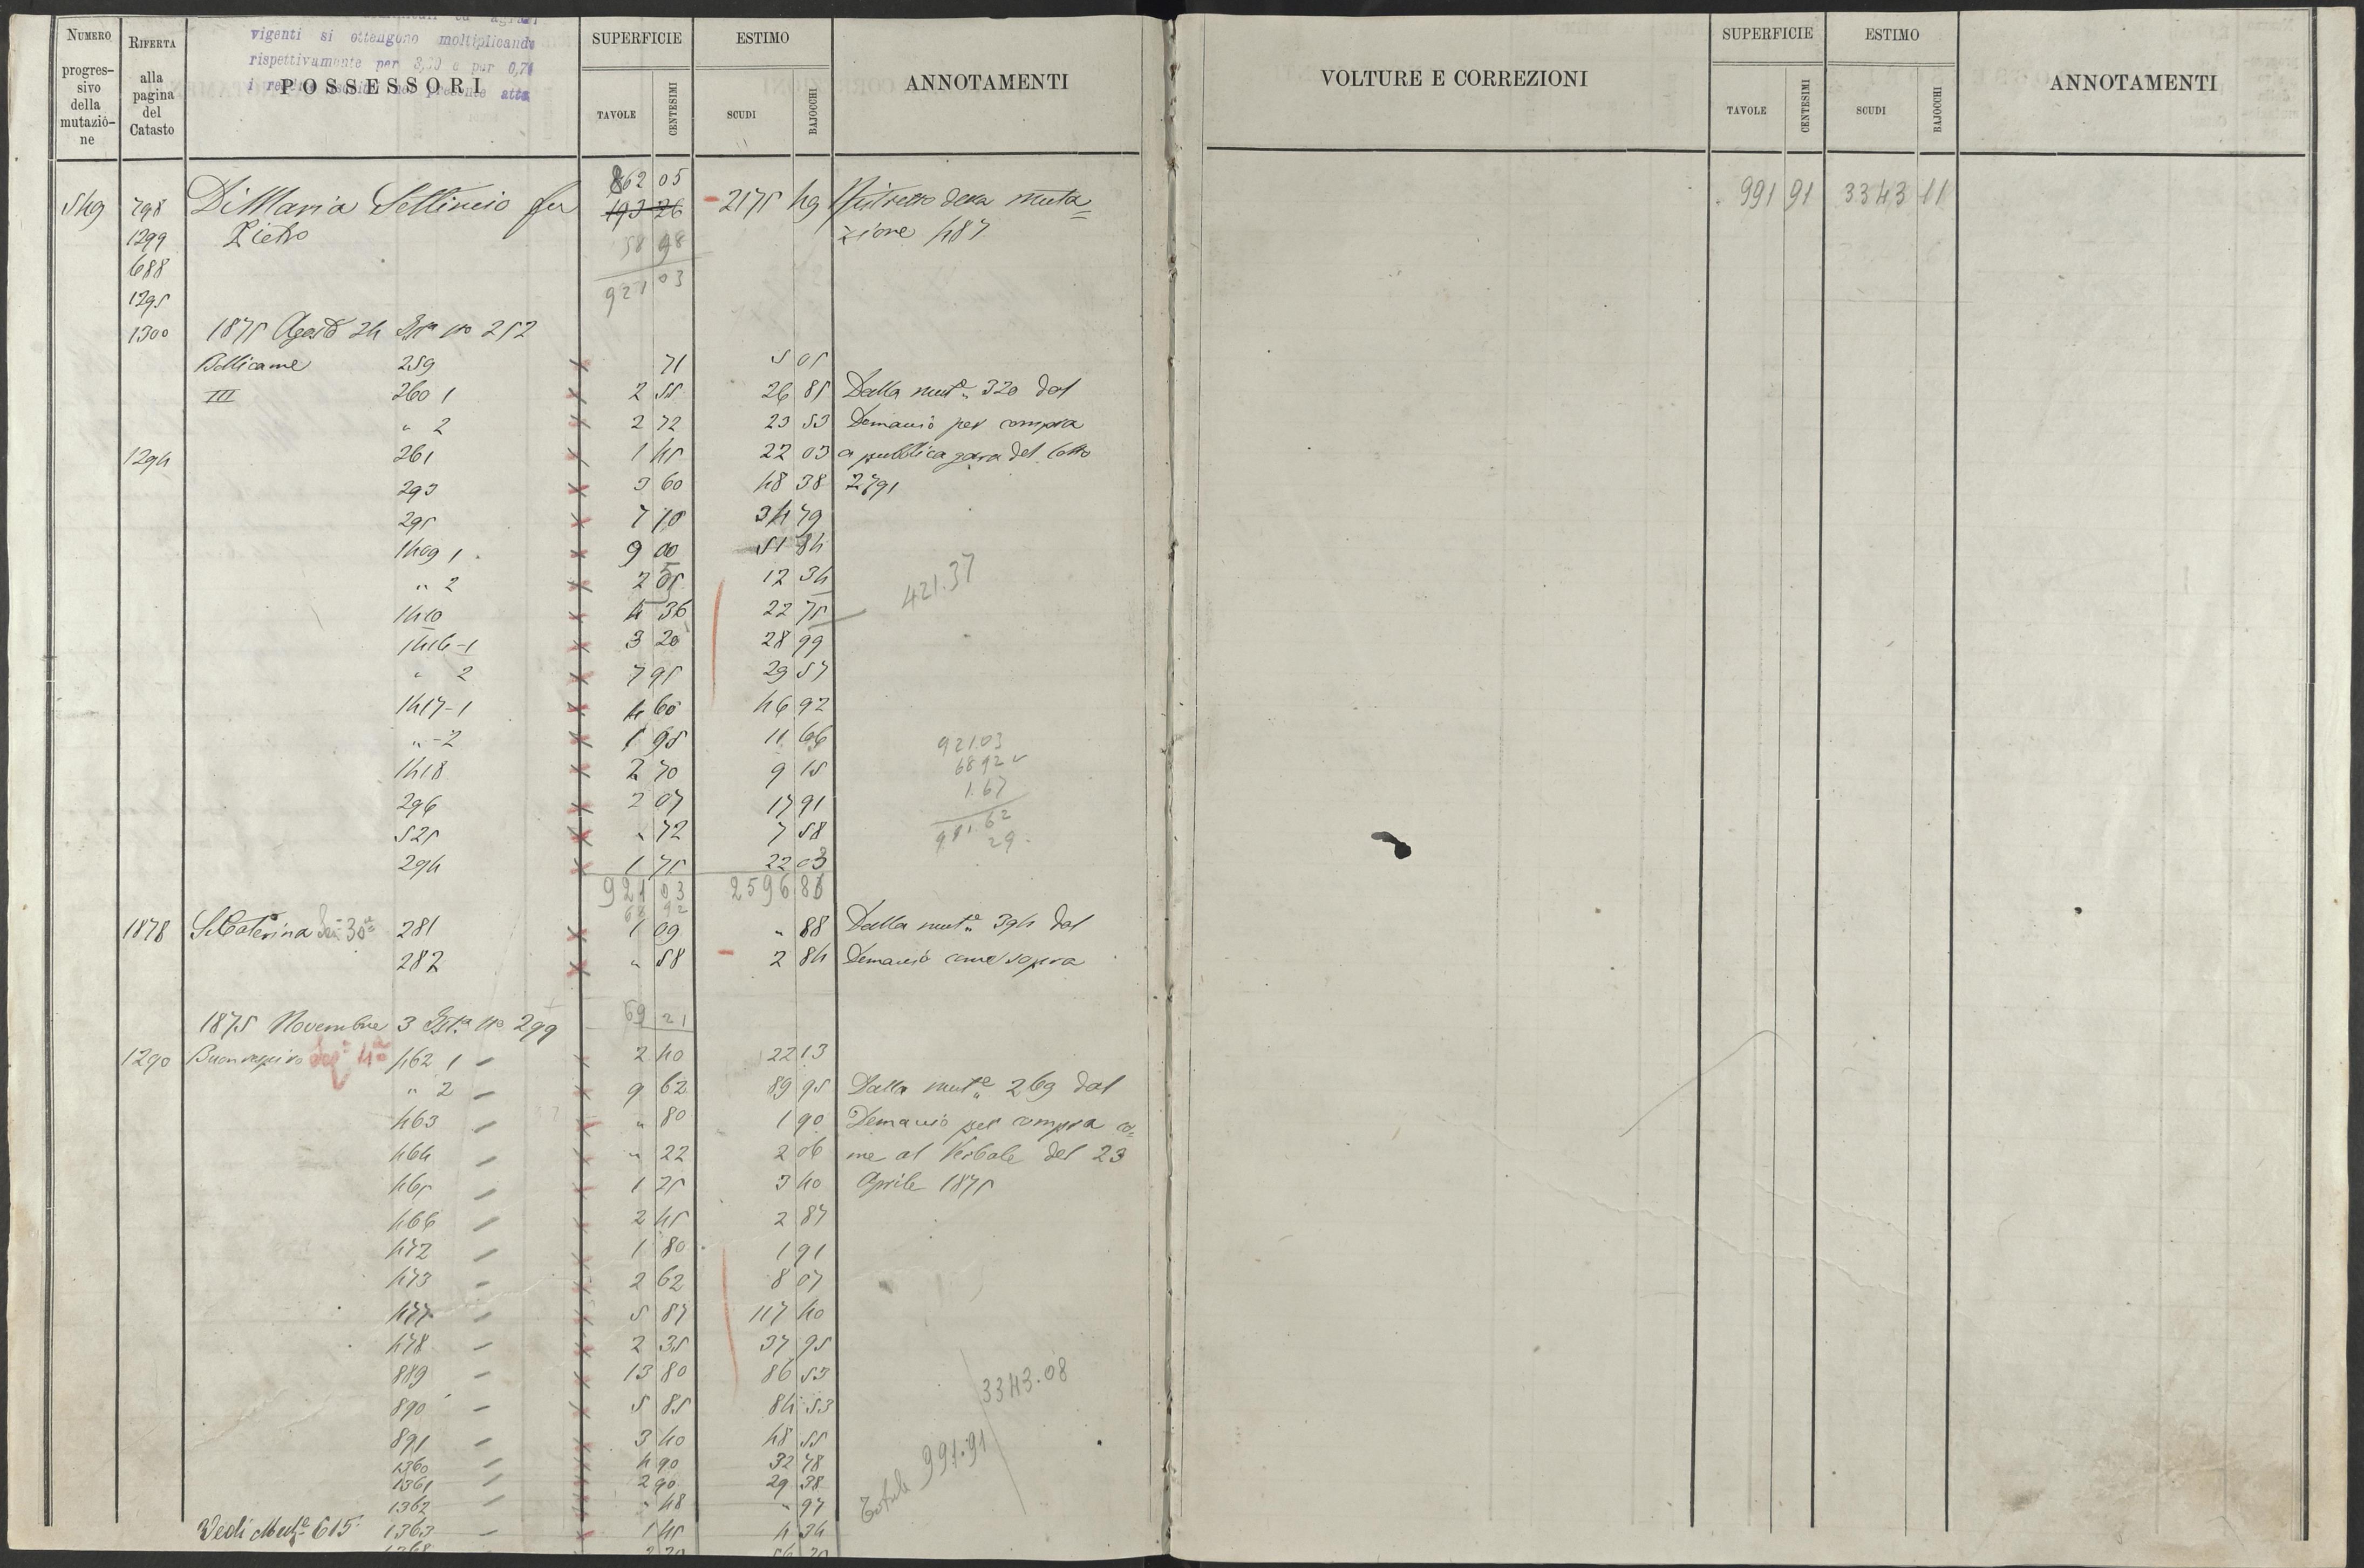 NUMERO progressivo della mutazione
RIFERTA alla pagina del Catasto
vigenti si ottengono moltiplicando
rispettivamente per
POSSESSORI
SUPERFICIE TAVOLE CENTESIMI
ESTIMO SCUDI BAJOCCHI
ANNOTAMENTI
VOLTURE E CORREZIONI
SUPERFICIE TAVOLE CENTESIMI
ESTIMO SCUDI BAJOCCHI
ANNOTAMENTI
862 05
549 798 Di Maria Settimio fu 193 26 2175 49 Ristretto della muta=
1299 Pietro 58 98 zione 487
688
1295 921 03
1300 1875 Agosto 24 no 252
Bollicame 259 71 5 05
III 260 1 2 55 26 85 Dalla mute. 320 dal
" 2 2 72 23 53 Demanio per compra
1294 261 1 45 22 03 a pubblica gara del Lotto
293 3 60 48 38 2791
295 7 10 34 79
1409 1 9 00 51 84
" 2 2 55 12 34
421.37
1410 4 36 22 75
1416-1 3 20 28 99
" 2 7 95 29 57
1417-1 4 60 46 92
" -2 1 95 11 66
921.03
1418 2 70 9 15
68 92
296 2 07 17 91
1.67
525 " 72 7 58
991.62
29
294 1 75 22 03
921 03 2596 86
68 92
1878 S. Caterina Sez 30a 281 1 09 " 88 Dalla mute. 394 dal
282 " 58 2 84 Demanio come sopra
69 21
1875 Novembre 3 no 299
1290 Buonrespiro Sez 4a 462 1 2 40 22 13
" 2 9 62 89 95 Dalla mute. 269 dal
463 " 80 1 90 Demanio per compra co=
464 " 22 2 06 me al Verbale del 23
465 1 25 3 40 Aprile 1875
466 2 45 2 87
472 1 80 1 91
473 2 62 8 07
477 5 87 117 40
478 2 35 37 95
889 13 80 86 53
890 5 85 84 53
891 3 40 48 55
1360 4 90 32 78
1361 2 90 29 38
1362 " 48 " 97
Vedi Mut.e 615 1363 1 45 4 34
Totale 991.91
3343.08
991 91 3343 11